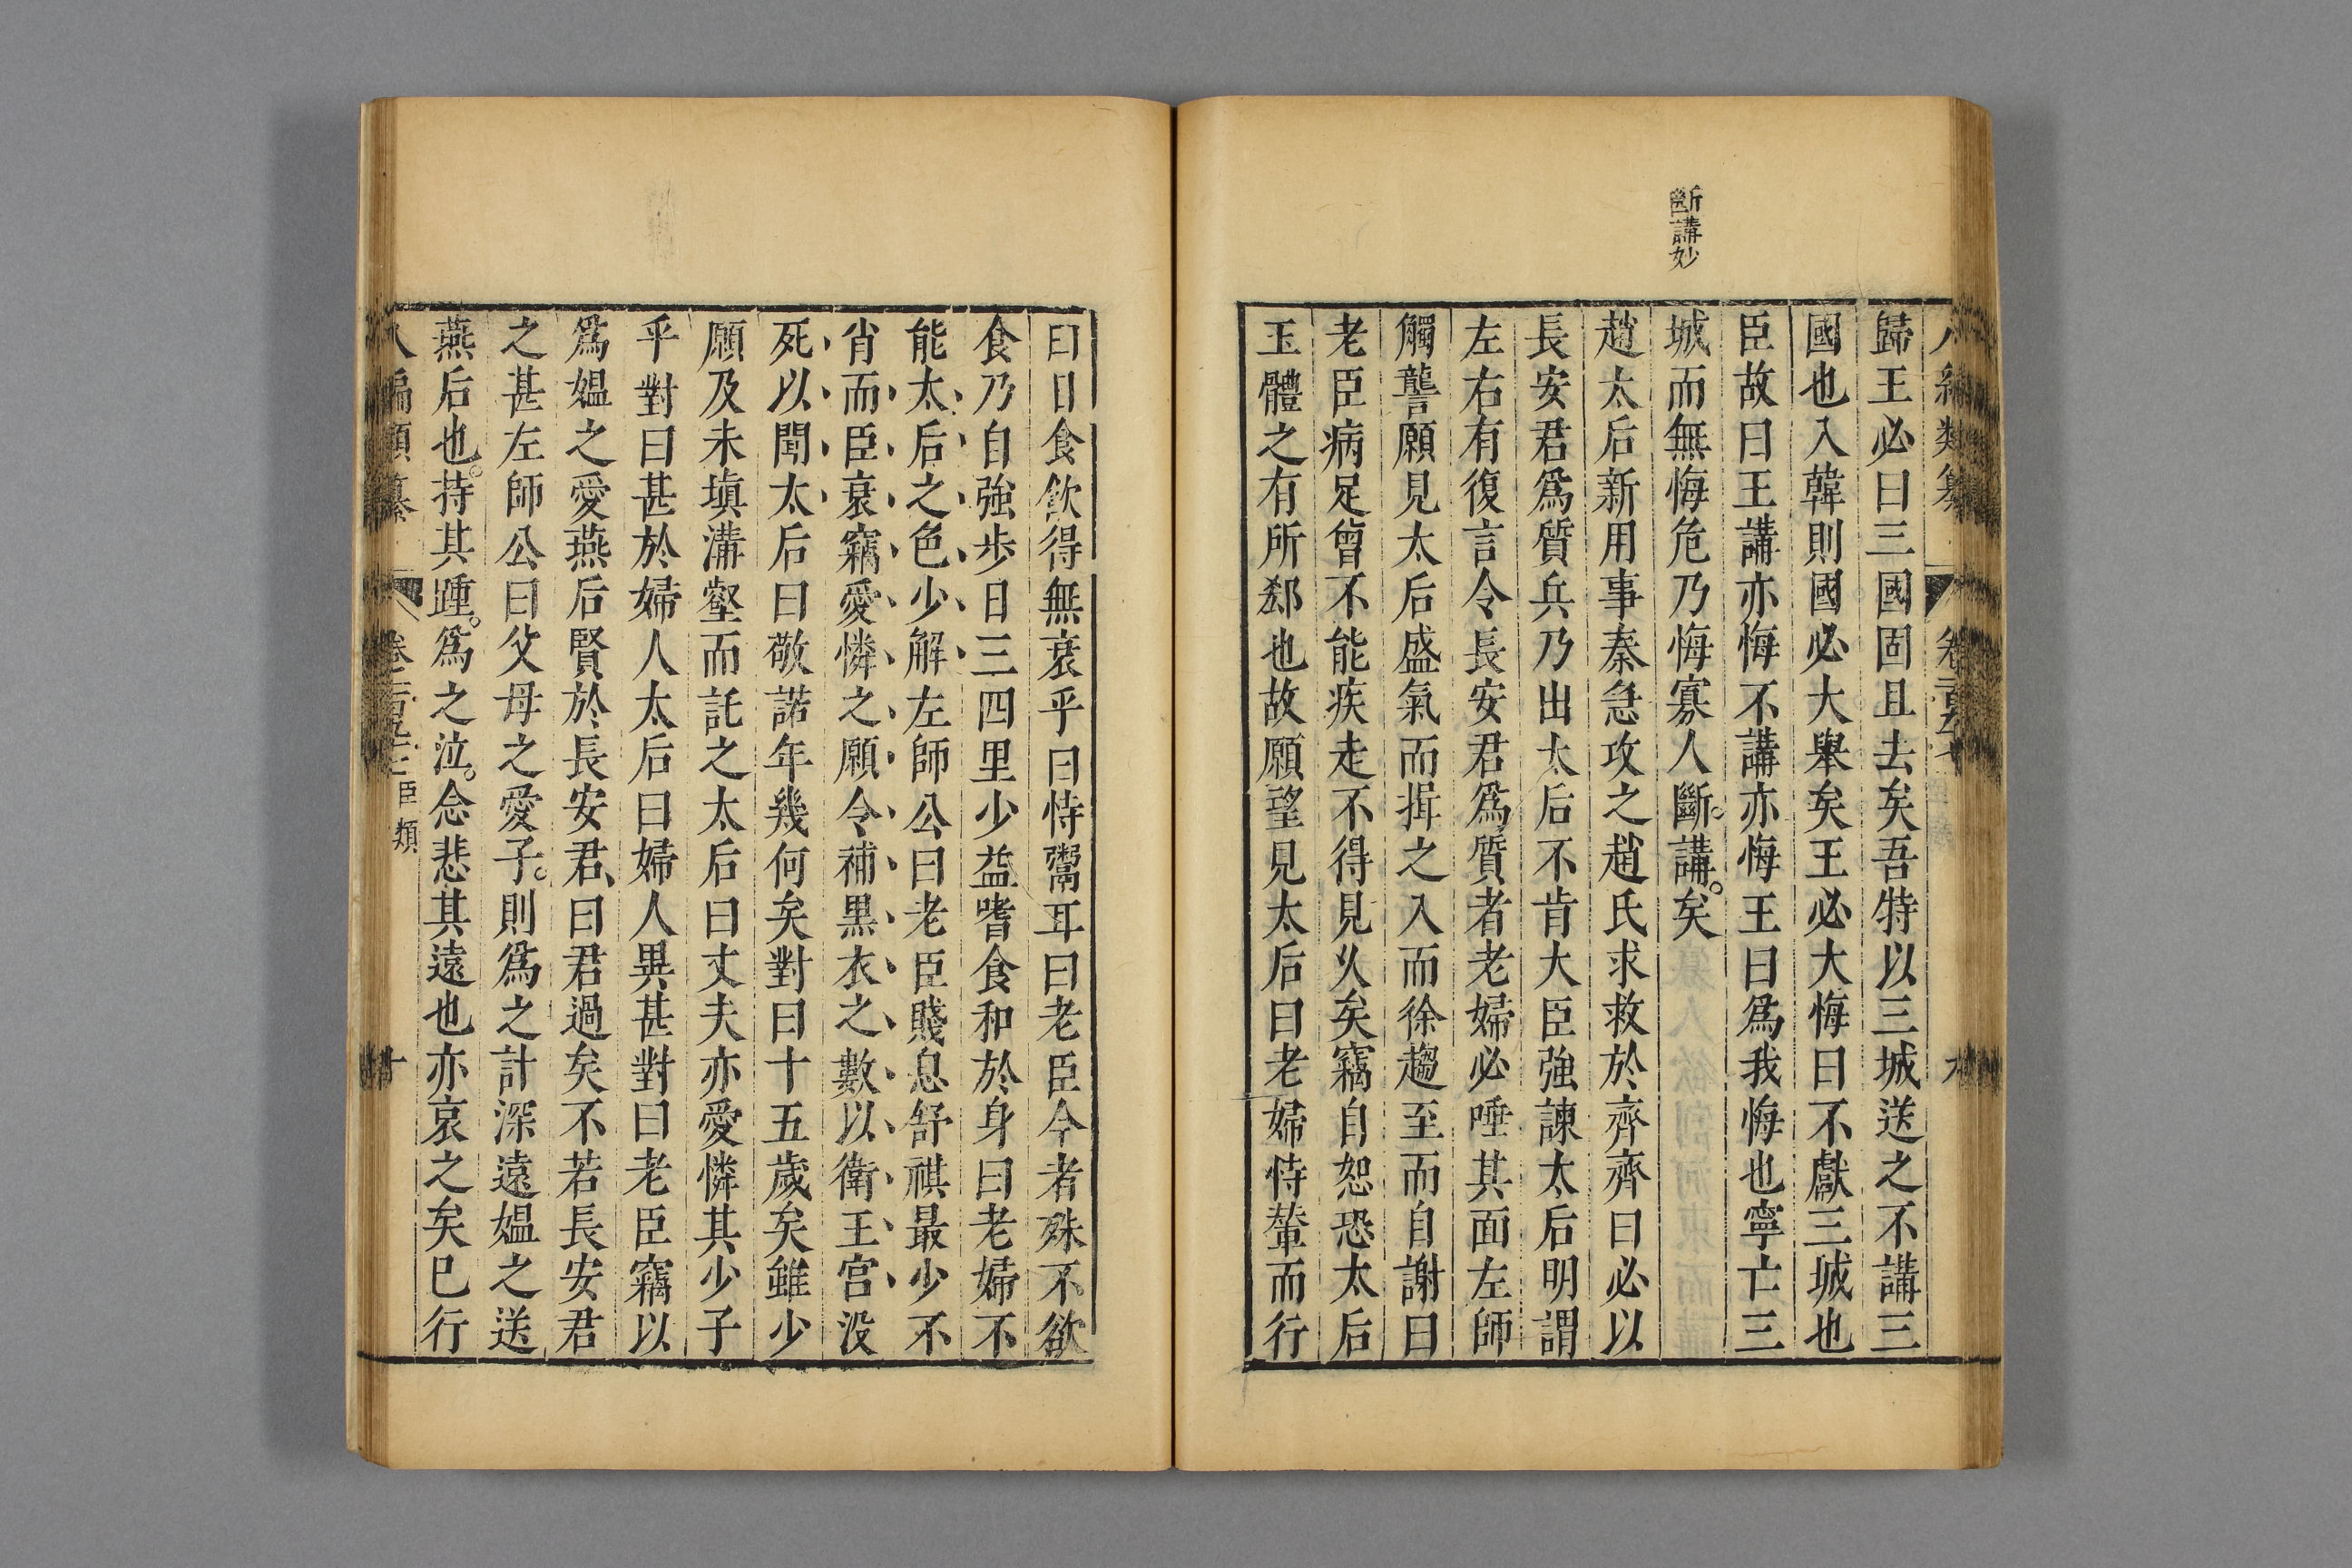 斷講妙
歸王必曰三國固且去矣吾特以三城送之不講三
國也入韓則國必大舉矣王必大悔曰不獻三城也
臣故曰王講亦悔不講亦悔王曰爲我悔也寧亡三
城而無悔危乃悔寡人斷。講。矣
趙太后新用事秦急攻之趙氏求救於齊齊曰必以
長安君爲質兵乃出太后不肯大臣強諫太后明謂
左右有復言令長安君爲質者老婦必唾其面左師
觸讋願見太后盛氣而揖之入而徐趨至而自謝曰
老臣病足曾不能疾走不得見乆矣竊自恕恐太后
玉體之有所郄也故願望見太后曰老婦恃輦而行
曰日食飲得無衰乎曰恃鬻耳曰老臣今者殊不欲
食乃自強步日三四里少益嗜食和於身曰老婦不
能太后之色少解左師公曰老臣賤息舒祺最少不
肖而臣衰竊愛憐之願令補黒衣之數以衛王宮没
死以聞太后曰敬諾年幾何矣對曰十五歲矣雖少
願及未塡溝壑而託之太后曰丈夫亦愛憐其少子
乎對曰甚於婦人太后曰婦人異甚對曰老臣竊以
爲媼之愛燕后賢於長安君、曰君過矣不若長安君
之甚左師公曰父母之愛子。則爲之計深遠媼之送
燕后也。持其踵。爲之泣。念悲其遠也亦哀之矣巳行